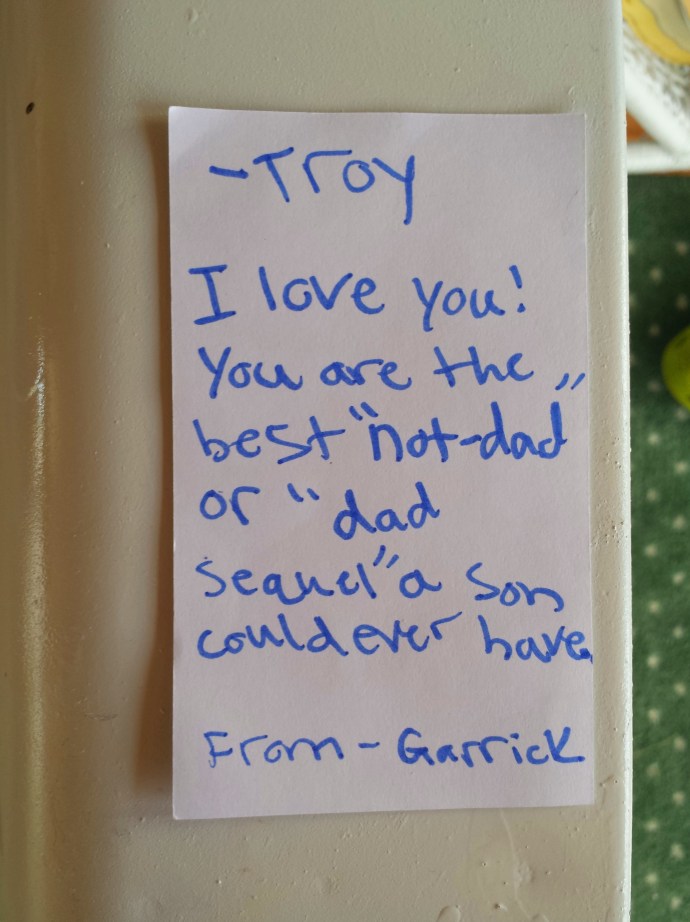 -Troy
I love you!
You are the
best "not-dad"
or "dad
sequel" a son
could ever have.
From - Garrick